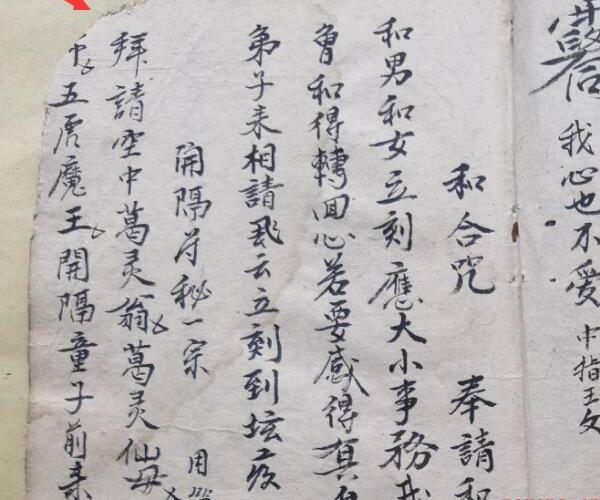 我心也不愛 中指王文
和合咒 奉請和
和男和女立刻應大小事務我
會和得轉回心若要感得真
弟子未相請飛云立刻到坛
開隔符秘一宗 用
拜請空中葛灵翁葛灵仙母
中五虎魔王開隔童子前来